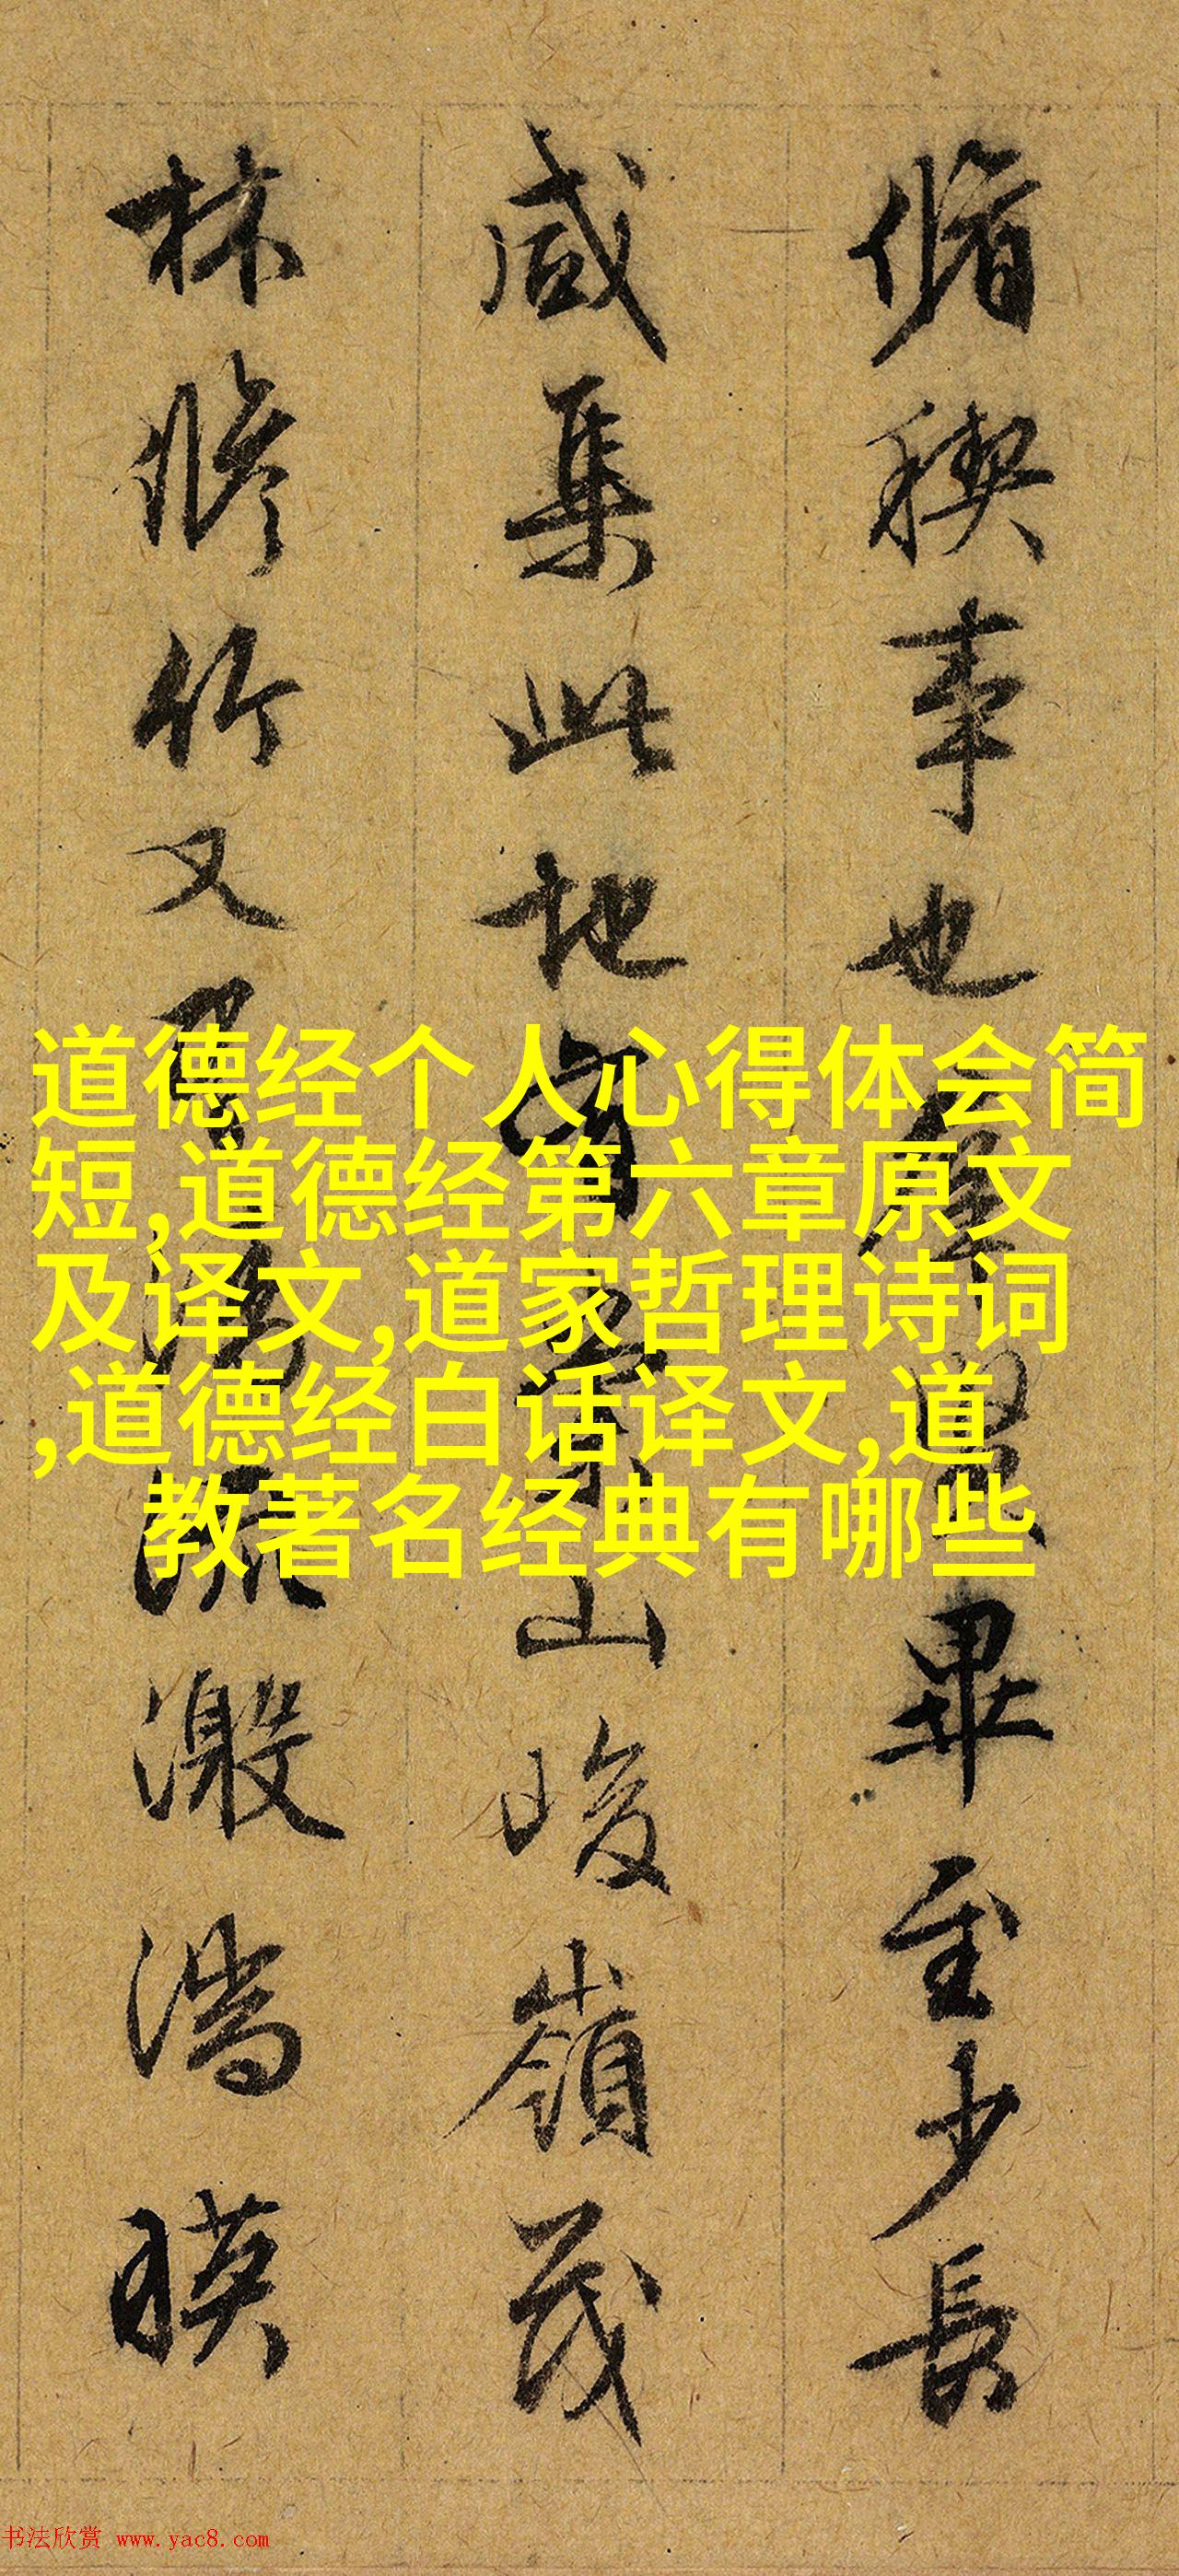 脩稧事也羣賢畢至少長
咸集此地有崇山峻領茂
林脩竹又有清流激湍暎
道德经个人心得体会简
短,道德经第六章原文
及译文,道家哲理诗词
,道德经白话译文,道
教著名经典有哪些
书法欣赏 www.yac8.com